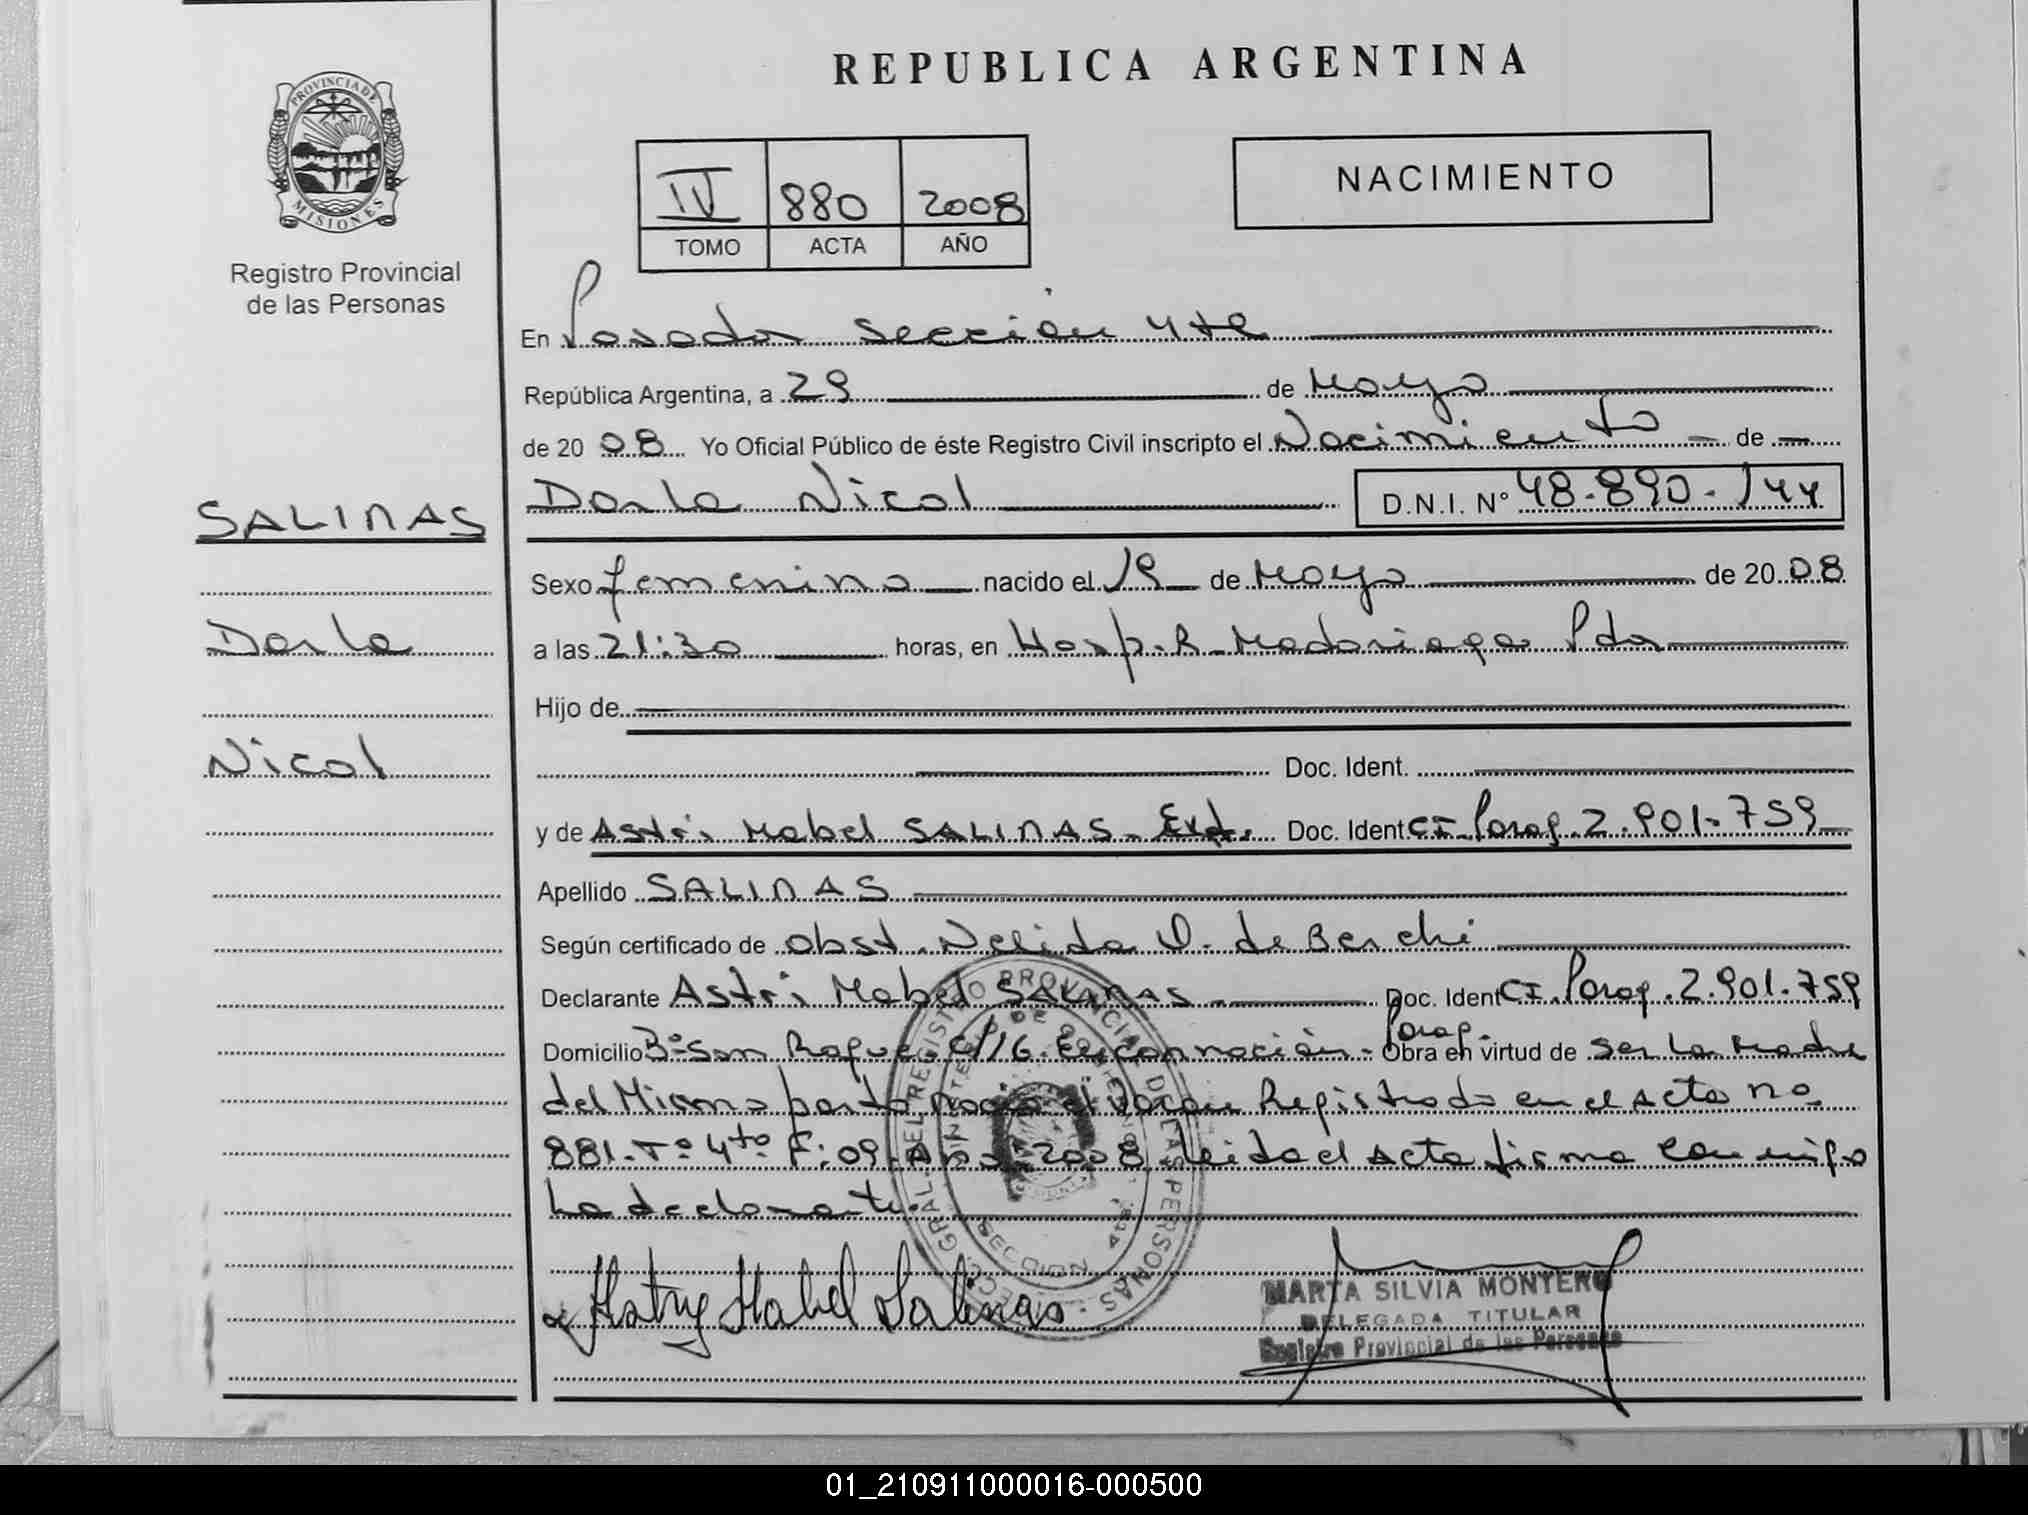 REPUBLICA ARGENTINA
PROVINCIA DE
MISIONES
Registro Provincial
de las Personas
IV 880 2008
TOMO ACTA AÑO
NACIMIENTO
En Posadas Sección 4ta
República Argentina, a 29 de Mayo
de 20 08 Yo Oficial Público de éste Registro Civil inscripto el Nacimiento de
SALINAS
Darla Nicol D.N.I. N° 48.890.144
Sexo femenino nacido el 19 de Mayo de 20 08
Darla
a las 21:30 horas, en Hosp. R. Madariaga Pdas
Hijo de
Nicol
Doc. Ident.
y de Astri Mabel SALINAS. Doc. Ident CI. Parag. 2.901.759
Apellido SALINAS
Según certificado de Obst. Nelida O. de Berchi
Declarante Astri Mabel SALINAS Doc. Ident CI. Parag. 2.901.759
Domicilio B° San Roque C/16. Encarnación. Parag. Obra en virtud de ser la Madre
del Mismo parto nació el varón Registrado en el acta no
881. T° 4to F: 09. Año: 2008 leida el acta firma conmigo
La declarante.
Mabel Salinas
MARTA SILVIA MONTERO
DELEGADA TITULAR
Registro Provincial de las Personas
01_210911000016-000500